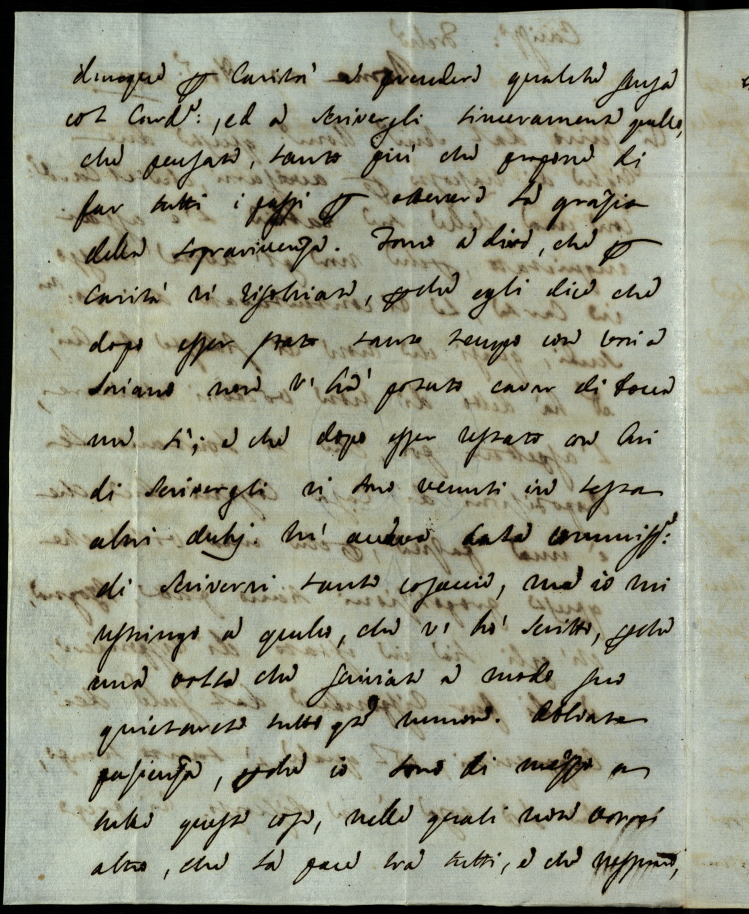 dunque ꝑ Carità a prendere qualche pausa
col Card.e:, ed a scrivergli sinceramente quello,
che pensate, tanto più che propone di
far tutti i passi ꝑ ottenere la grazia
della sopravivenza. Torno a dire, che ꝑ
Carità vi risolviate, ꝑche egli dice che
dopo esser stato tanto tempo con voi a
Soriano non v'hà potuto cavar di bocca
un sì; e che dopo esser restato con lui
di scrivergli vi sono venuti in testa
altri dubj. M'aveva data commiss.e:
di scrivervi tante cosaccie, ma io mi
restringo a quello, che v'hò scritto, ꝑche
una volta che scriviate a modo suo
quietarete tutto q.to rumore. Abbiate
pazienza, ꝑche io sono di mezzo a
tutte queste cose, nelle quali non vorrei
altro, che la pace trà tutti, e che nessuno,